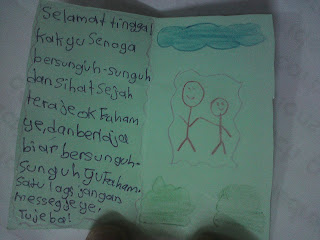 Selamat tinggal
kakyu Senaga
bersunguh-sunguh
dan Sihat Sejah
tera je ok Faham
ye, dan berlaja
biar bersunguh-
Sunguh Faham.
Satu lagi jangan
messegje ye,